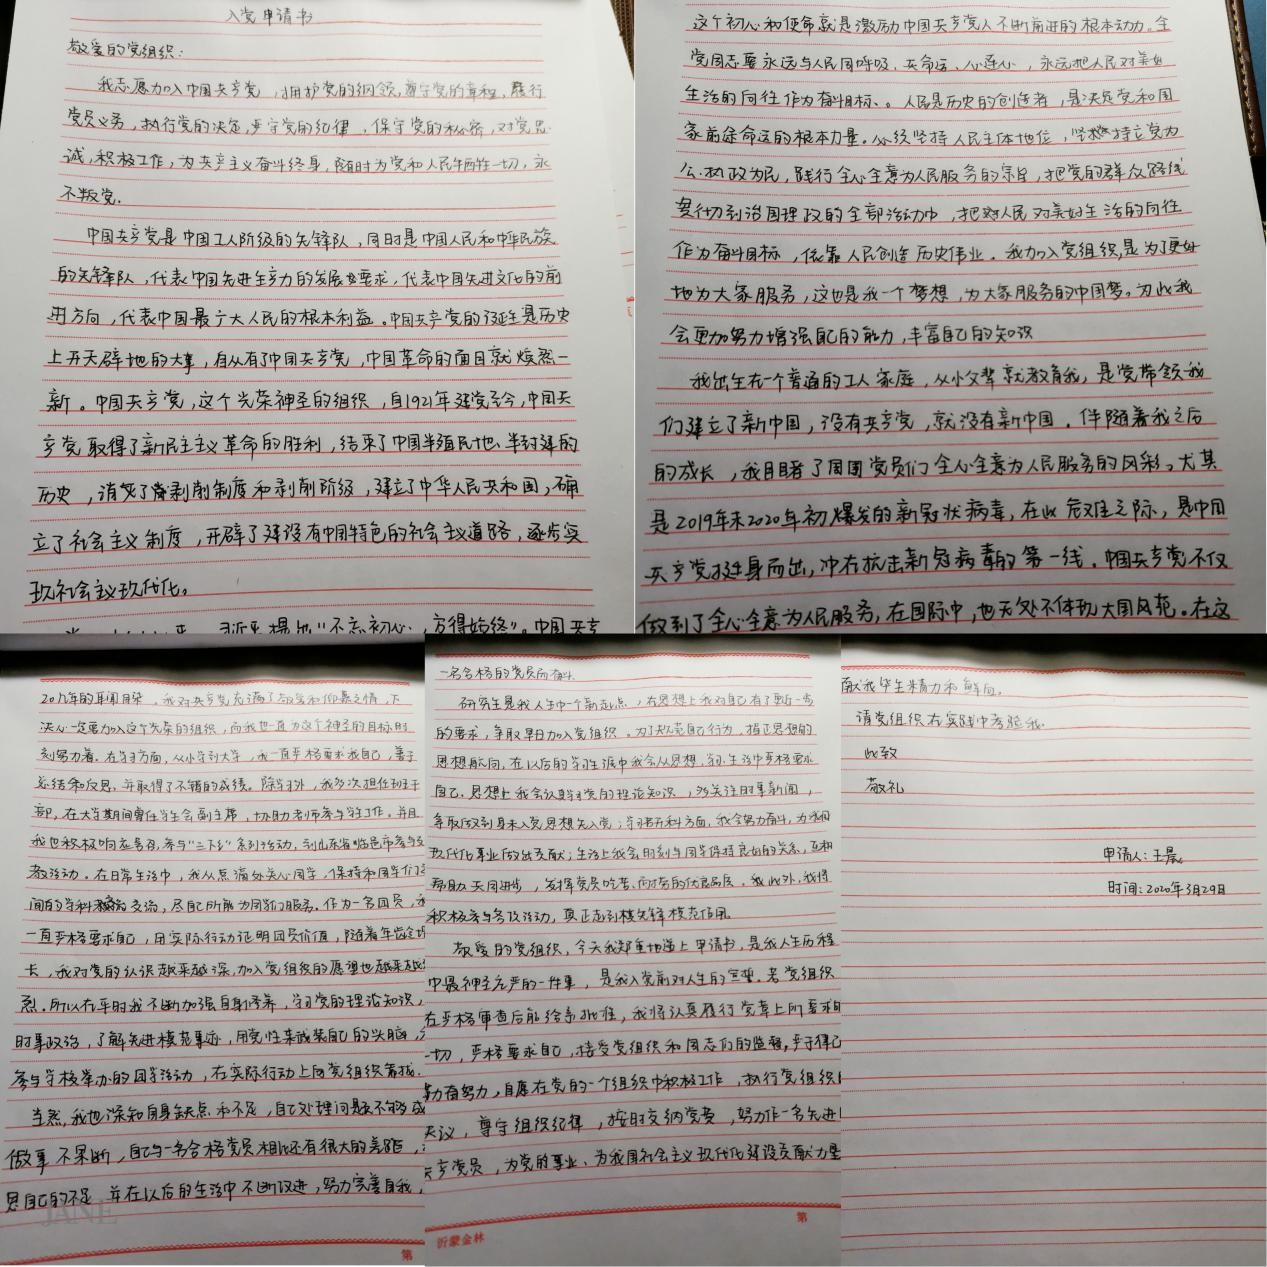 入党申请书
敬爱的党组织:
我志愿加入中国共产党,拥护党的纲领,遵守党的章程,履行
党员义务,执行党的决定,严守党的纪律,保守党的秘密,对党忠
诚,积极工作,为共产主义奋斗终身,随时为党和人民牺牲一切,永
不叛党.
中国共产党是中国工人阶级的先锋队,同时是中国人民和中华民族
的先锋队,代表中国先进生产力的发展要求,代表中国先进文化的前
进方向,代表中国最广大人民的根本利益.中国共产党的诞生是历史
上开天辟地的大事,自从有了中国共产党,中国革命的面目就焕然一
新。中国共产党,这个光荣神圣的组织,自1921年建党至今,中国共
产党取得了新民主主义革命的胜利,结束了中国半殖民地、半封建的
历史,消灭了剥削制度和剥削阶级,建立了中华人民共和国,确
立了社会主义制度,开辟了建设有中国特色的社会主义道路,逐步实
现社会主义现代化。
习近平提出"不忘初心、方得始终"。中国共产
这个初心和使命就是激励中国共产党人不断前进的根本动力。全
党同志要永远与人民同呼吸、共命运、心连心,永远把人民对美好
生活的向往作为奋斗目标、。人民是历史的创造者,是决定党和国
家前途命运的根本力量。必须坚持人民主体地位,坚持立党为
公、执政为民,践行全心全意为人民服务的宗旨,把党的群众路线
贯彻到治国理政的全部活动中,把人民对美好生活的向往
作为奋斗目标,依靠人民创造历史伟业。我加入党组织,是为了更好
地为大家服务,这也是我一个梦想,为大家服务的中国梦。为此我
会更加努力增强自己的能力,丰富自己的知识
我出生在一个普通的工人家庭,从小父辈就教育我,是党带领我
们建立了新中国,没有共产党,就没有新中国.伴随着我之后
的成长,我目睹了周围党员们全心全意为人民服务的风彩。尤其
是2019年末2020年初爆发的新冠状病毒,在此危难之际,是中国
共产党挺身而出,冲在抗击新冠病毒的第一线.中国共产党不仅
做到了全心全意为人民服务,在国际中,也无处不体现大国风范。在这
20几年的耳闻目染,我对共产党充满了敬爱和仰慕之情,下
决心一定要加入这个光荣的组织,而我也一直为这个神圣的目标时
刻努力着.在学习方面,从小学到大学,我一直严格要求我自己,善于
总结和反思,并取得了不错的成绩。除学习外,我多次担任班干
部,在大学期间曾任学生会副主席,协助老师参与学生工作.并且
我也积极响应号召,参与"三下乡"系列活动,到山东省临邑市参与支
教活动。在日常生活中,我从点滴处关心同学,保持和同学们之
间的学科交流,尽自己所能为同学们服务.作为一名团员,我
一直严格要求自己,用实际行动证明团员价值,随着年龄增
长,我对党的认识越来越深,加入党组织的愿望也越来越强
烈.所以在平时我不断加强自身修养,学习党的理论知识,
时事政治,了解先进模范事迹,用党性来武装自己的头脑,
参与学校举办的团学活动,在实际行动上向党组织靠拢.
当然,我也深知自身缺点和不足,自己处理问题不够成
做事不果断,自己与一名合格党员相比还有很大的差距,
思自己的不足,并在以后的生活中不断改进,努力完善自我,
JANE
第
一名合格的党员而奋斗.
研究生是我人生中一个新起点,在思想上我对自己有了更近一步
的要求,争取早日加入党组织.为了规范自己行为,指正思想的
思想航向,在以后的学习生涯中我会从思想、学习、生活中严格要求
自己.思想上我会认真学习党的理论知识,多关注时事新闻,
争取做到身未入党思想先入党;学习科研方面,我会努力奋斗,为我国
现代化事业做出贡献;生活上我会时刻与同学保持良好的关系,互相
帮助共同进步,发挥党员吃苦、向前的优良品质.除此外,我将
积极参与各项活动,真正起到模先锋模范作用.
敬爱的党组织,今天我郑重地递上申请书,是我人生历程
中最神圣庄严的一件事,是我入党前对人生的宣誓.若党组织
在严格审查后能给予批准,我将认真履行党章上所要求的
一切,严格要求自己,接受党组织和同志们的监督,严于律己
勤奋努力,自愿在党的一个组织中积极工作,执行党组织
决议,遵守组织纪律,按时交纳党费,努力作一名先进
共产党员,为党的事业、为我国社会主义现代化建设贡献力量
第
沂蒙金林
献我毕生精力和鲜血.
请党组织在实践中考验我.
此致
敬礼
申请人:王晨
时间:2020年3月29日